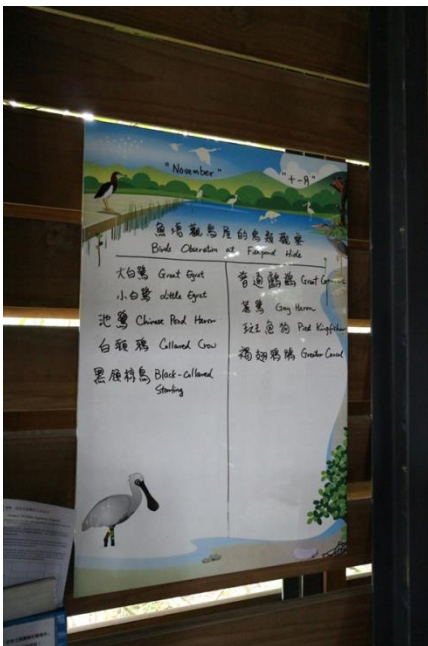 "November"
"十一月"
魚塘觀鳥屋的鳥類觀察
Birds Obseration at Fishpond Hide
大白鷺 Great Egret
小白鷺 Little Egret
池鷺 Chinese Pond Heron
白頸鴉 Collared Crow
黑領椋鳥 Black-collared
Starling
普通鸕鷀 Great
蒼鷺 Grey Heron
斑魚狗 Pied Kingfisher
褐翅鴉鵑 Greater Coucal